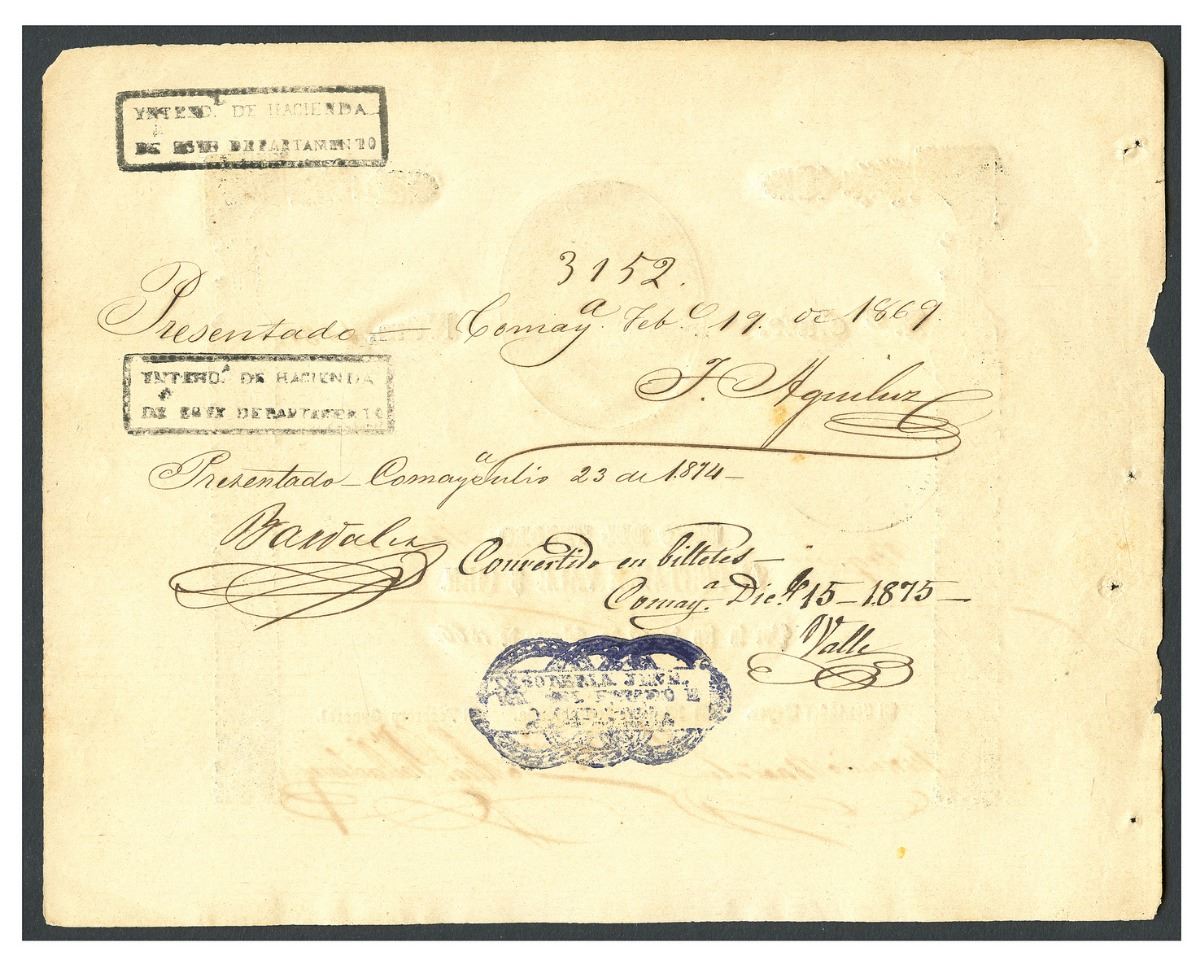 YNTEND.ª DE HACIENDA
DE ESTE DEPARTAMENTO
3152.
Presentado — Comay.ª Feb.º 19. de 1869.
YNTEND.ª DE HACIENDA
DE ESTE DEPARTAMENTO
J. Aguiluz
Presentado – Comay.ª Julio 23 de 1874 –
Bardales
Convertido en billetes –
Comay.ª Dic.e 15 – 1875 –
Valle
TESORERIA JENR.